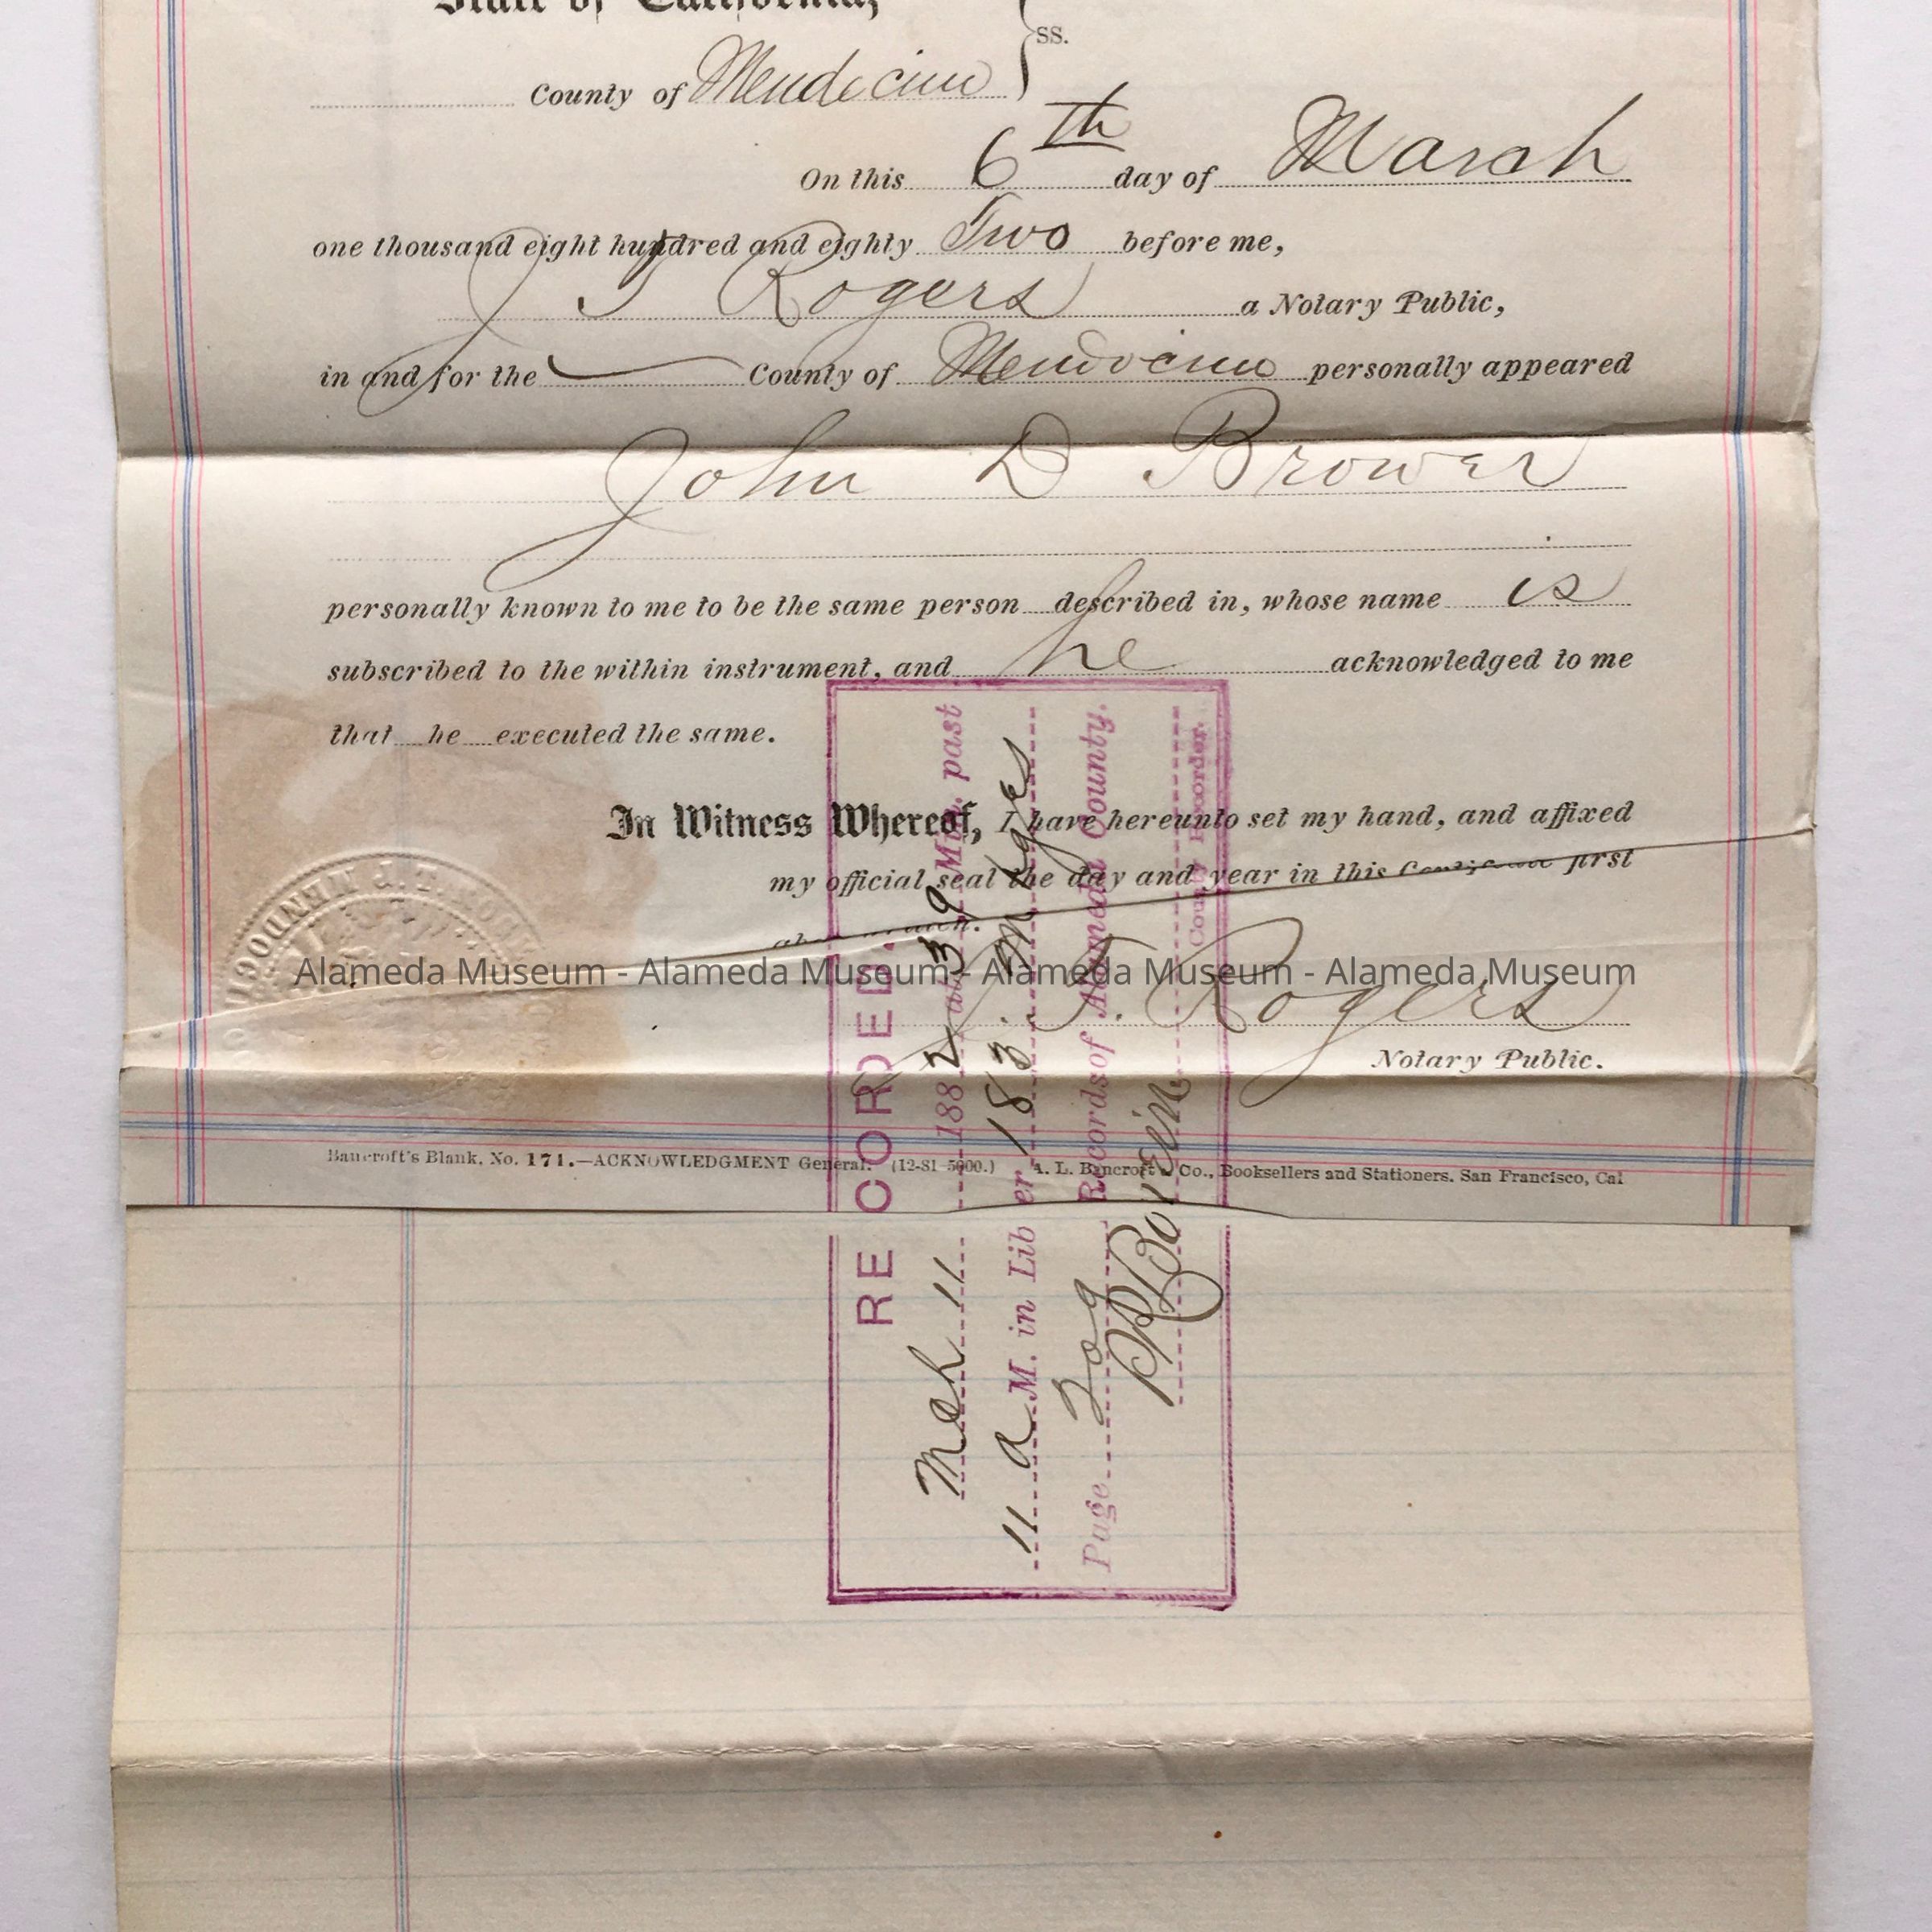 State of California,
ss.
County of Mendocino
On this 6th day of March
one thousand eight hundred and eighty Two before me,
J T Rogers a Notary Public,
in and for the County of Mendocino personally appeared
John D Brower
personally known to me to be the same person described in, whose name is
subscribed to the within instrument, and he acknowledged to me
that he executed the same.
In Witness Whereof, I have hereunto set my hand, and affixed
my official seal the day and year in this Certificate first
above written.
J. T. Rogers
Notary Public.
Bancroft's Blank, No. 171.—ACKNOWLEDGMENT General. (12-81-5000.) A. L. Bancroft & Co., Booksellers and Stationers, San Francisco, Cal
RECORDED.
Mch 11 1882 at 39 Min. past
11 a M. in Liber 183. Mtges
Page 209 Records of Alameda County.
County Recorder.
J. T. MENDO
Alameda Museum - Alameda Museum - Alameda Museum - Alameda Museum